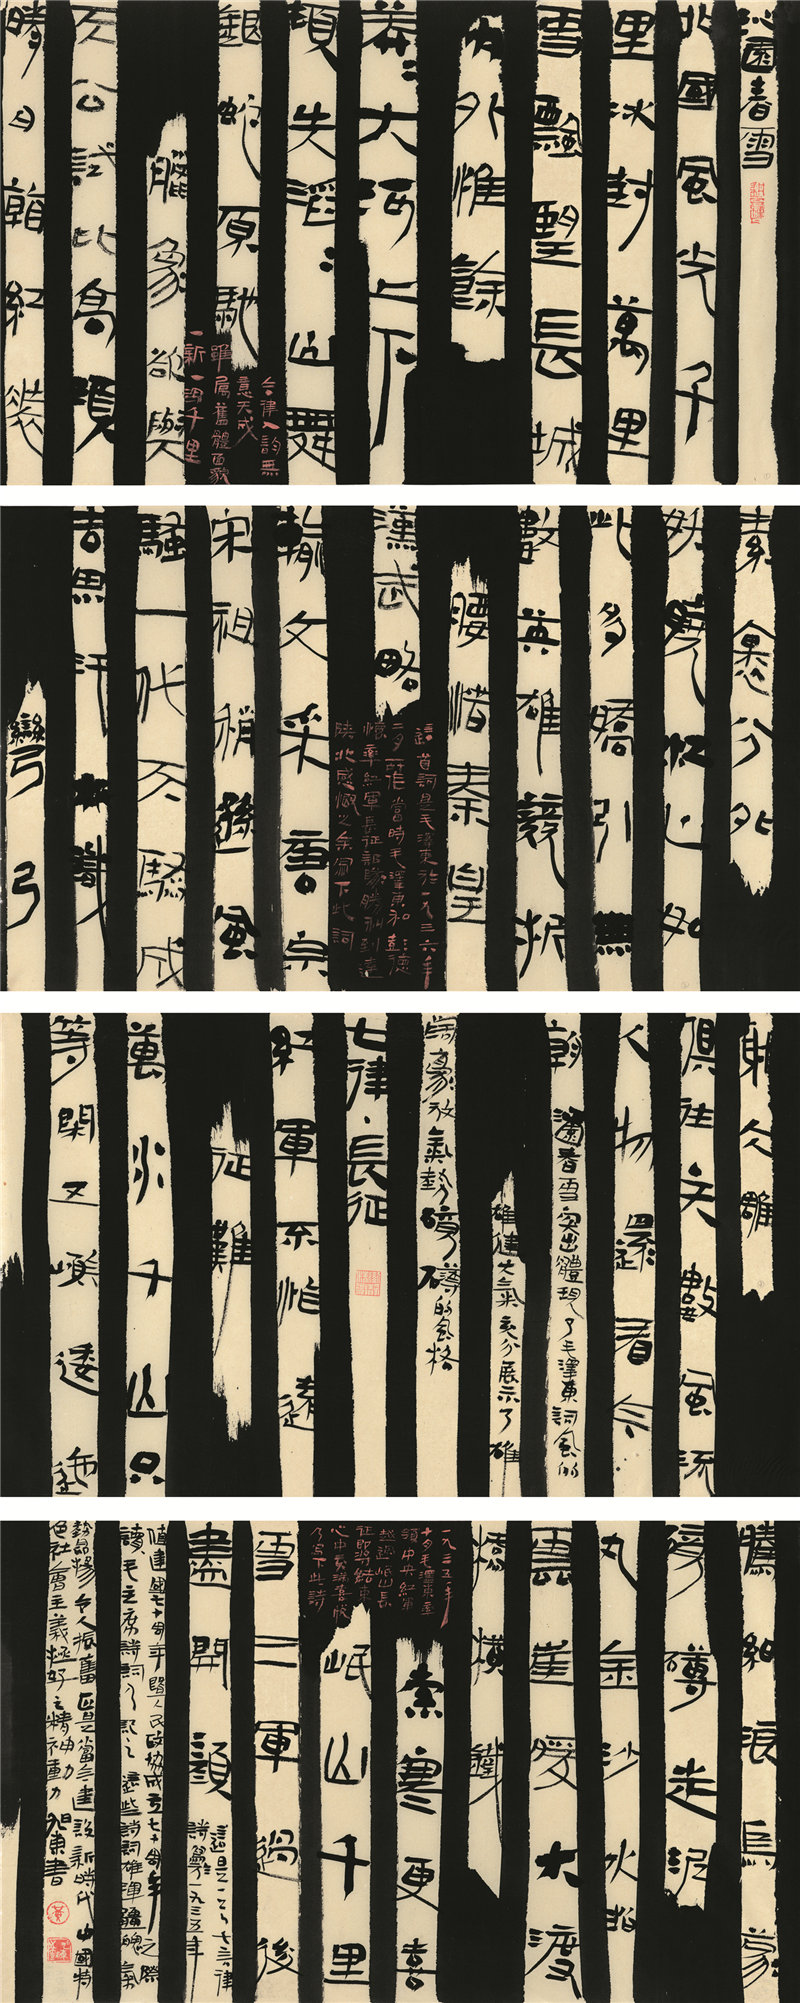 沁園春雪
北國風光千
里冰封萬里
雪飄望長城
內外惟餘
莽〻大河上下
頓失滔〻山舞
銀蛇原馳
合律入韵無
意天成
雖屬舊體面貌
一新一瀉千里
臘象欲與
天公試比高須
晴日看紅裝
素裹分外
妖嬈江山如
此多嬌引無
數英雄競折
腰惜秦皇
漢武略
這首詞是毛澤東於一九三六年
二月所作當時毛澤東和彭德
懷率紅軍長征部隊勝利到達
陝北感慨之余寫下此詞
輸文采唐宗
宋祖稍遜風
騷一代天驕成
吉思汗只識
彎弓
射大雕
俱往矣數風流
人物還看今
朝 沁園春雪突出體現了毛澤東詞風的
雄健大氣充分展示了雄
闊豪放氣勢磅礴的風格
七律·長征
紅軍不怕遠
征難
萬水千山只
等閑五嶺逶迤
騰細浪烏蒙
磅礴走泥
丸金沙水拍
雲崖暖大渡
橋橫鐵
一九三五年
十月毛澤東率
領中央紅軍
越過岷山長
征即將結束
心中充滿喜悅
乃寫下此詩
索寒更喜
岷山千里
雪三軍過後
盡開顏
這是一首七言律
詩寫於一九三五年
值建國七十周年暨人民政協成立七十周年之際
讀毛主席詩詞有記之 這些詩詞雄渾 氣
勢昂揚令人振奮正是當今建設新時代中國特
色社會主義極好之精神動力 旭東書